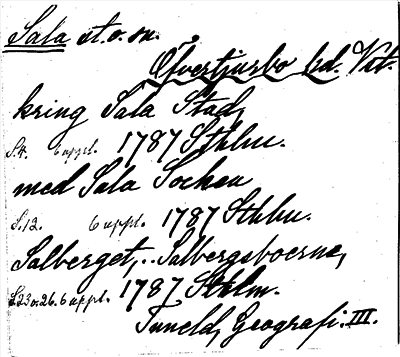 Sala st. o. sn.
Öfvertjurbo hd. Vst.
kring Sala Stad,
S.4. 6 uppl. 1787 Sthlm.
med Sala Socken
S.12. 6 uppl. 1787 Sthlm.
Salberget,.. Salbergsboerne,
S.23 o. 26. 6 uppl. 1787 Sthlm.
Tuneld, Geografi. III.